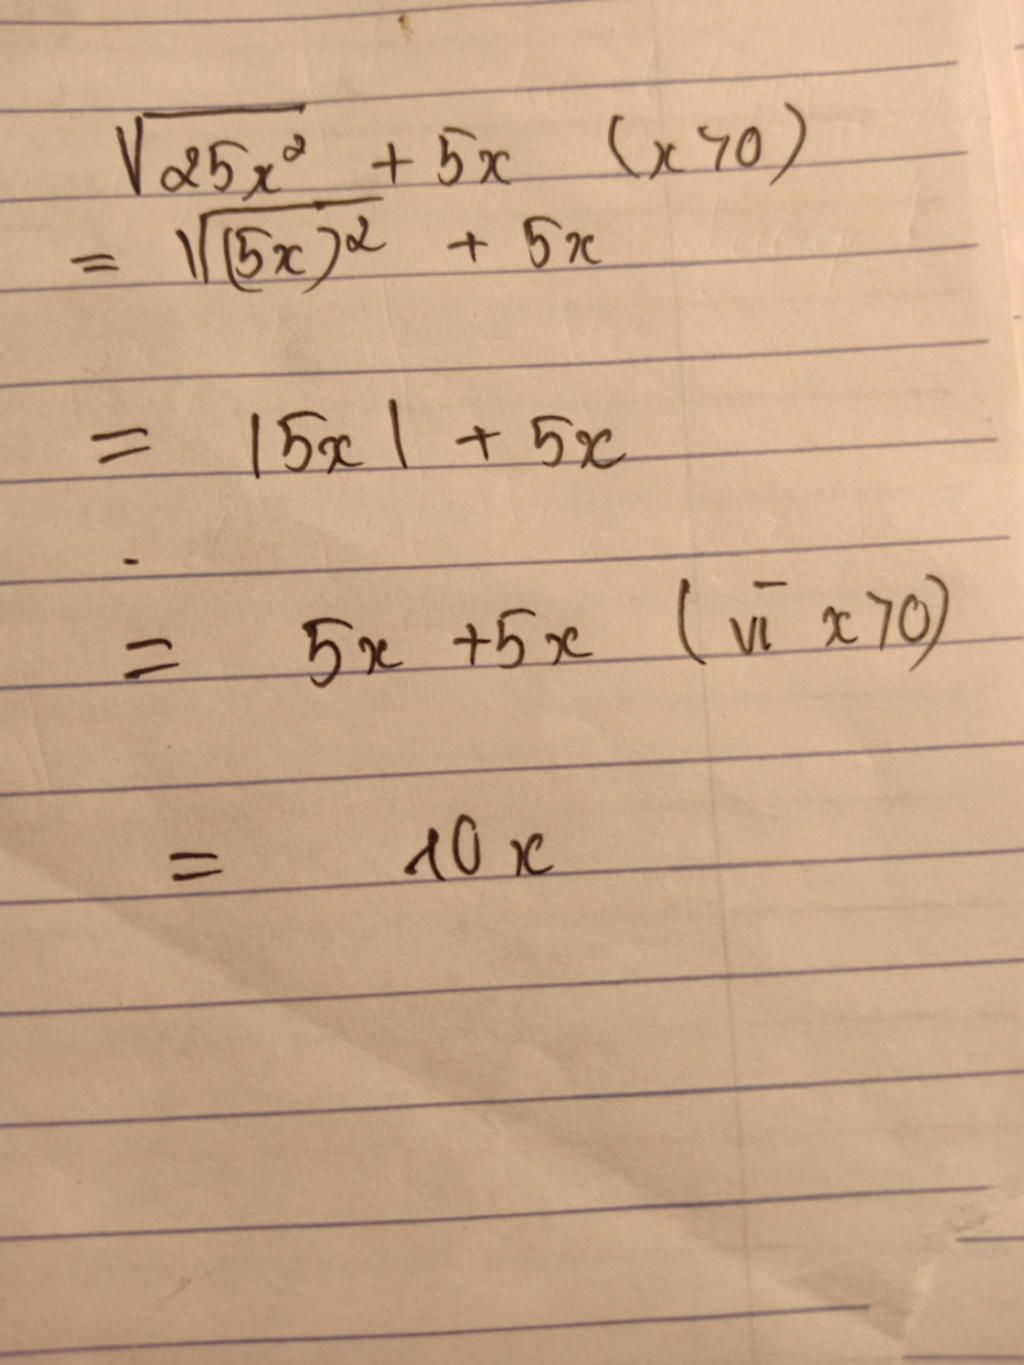 √25x² + 5x (x>0)
= √(5x)² + 5x
= |5x| + 5x
= 5x + 5x (vì x>0)
= 10x